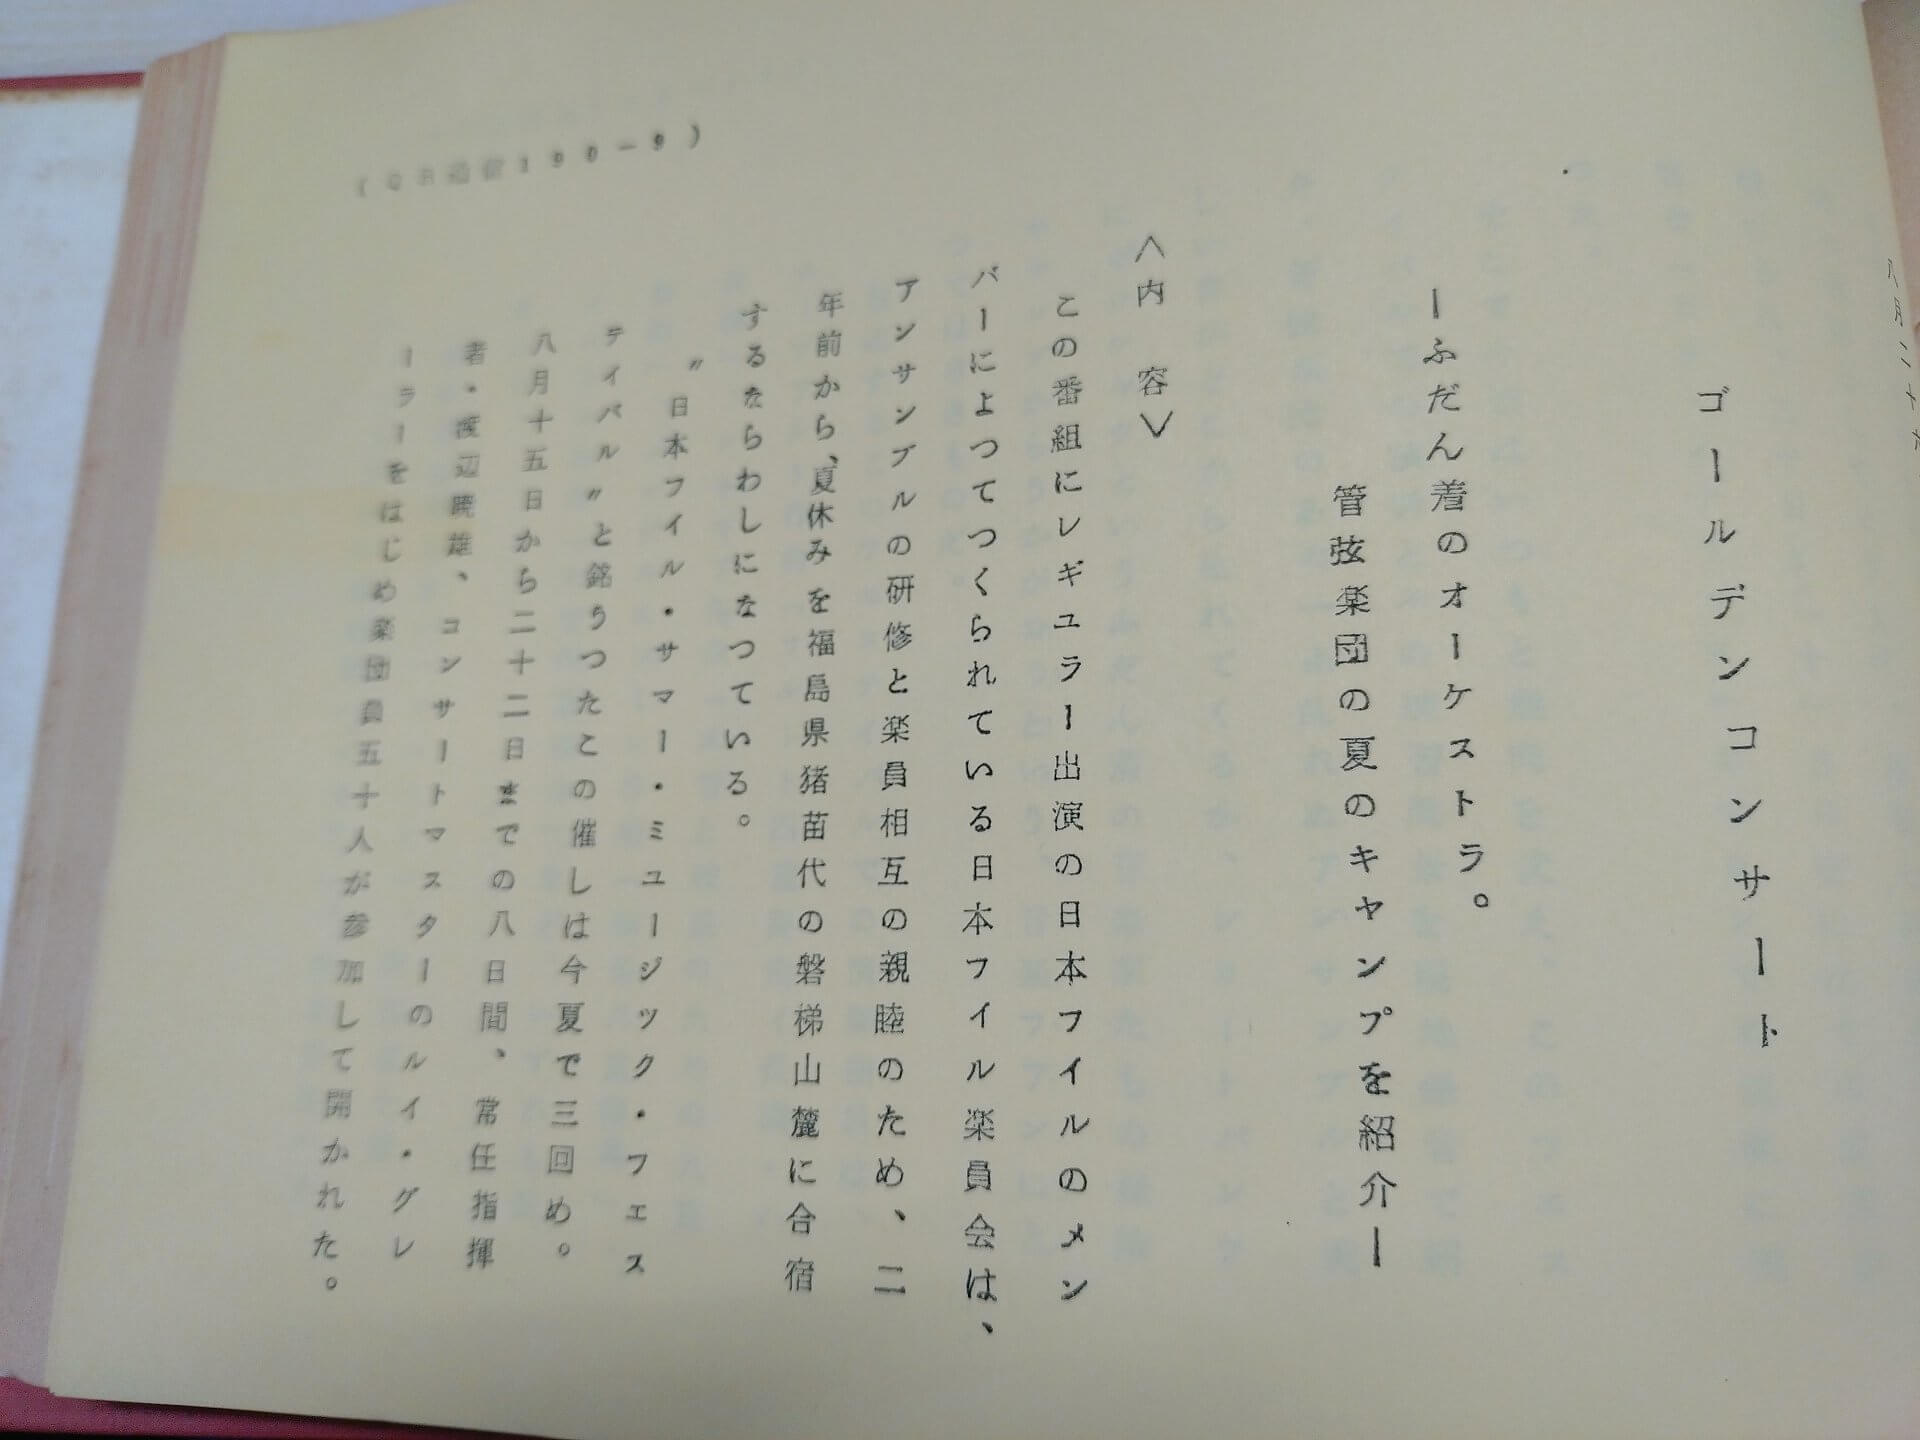 八月二十
ゴールデンコンサート
ーふだん着のオーケストラ。
管弦楽団の夏のキャンプを紹介ー
＜内　容＞
この番組にレギユラー出演の日本フイルのメン
バーによつてつくられている日本フイル楽員会は、
アンサンブルの研修と楽員相互の親睦のため、二
年前から、夏休みを福島県猪苗代の磐梯山麓に合宿
するならわしになつている。
〃日本フイル・サマー・ミユージック・フェス
テイバル〃と銘うつたこの催しは今夏で三回め。
八月十五日から二十二日までの八日間、常任指揮
者・渡辺暁雄、コンサートマスターのルイ・グレ
ーラーをはじめ楽団員五十人が参加して開かれた。
190－9）